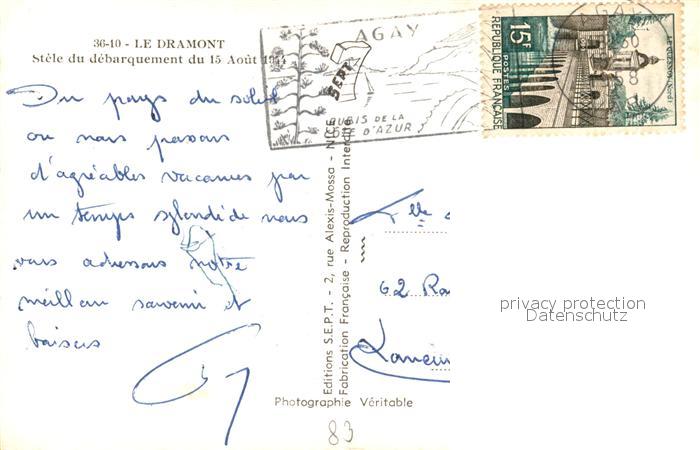 36-10 - LE DRAMONT
Stèle du débarquement du 15 Août 1944
Du pays du soleil
ou nous passons
d'agréables vacances par
un temps splendide nous
vous adressons notre
meilleur souvenir et
baisers
AGAY
LOGIS DE LA
CÔTE D'AZUR
AGAY
15F
POSTES
RÉPUBLIQUE FRANÇAISE
LE QUESNOY-Nord
Editions S.E.P.T. - 2, rue Alexis-Mossa - NICE
Fabrication Française - Reproduction Interdite
SEPT
Mlle
62 Ra
Photographie Véritable
83
privacy protection
Datenschutz